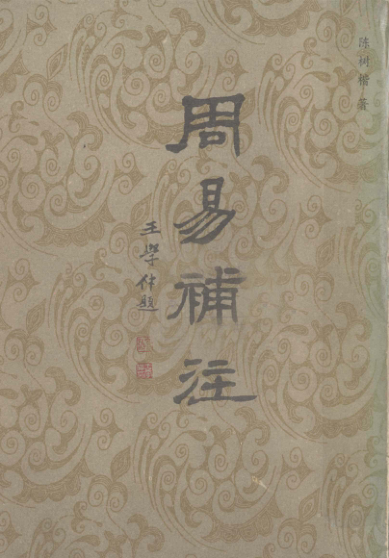 陈树楷 著
周易補注
王學仲題